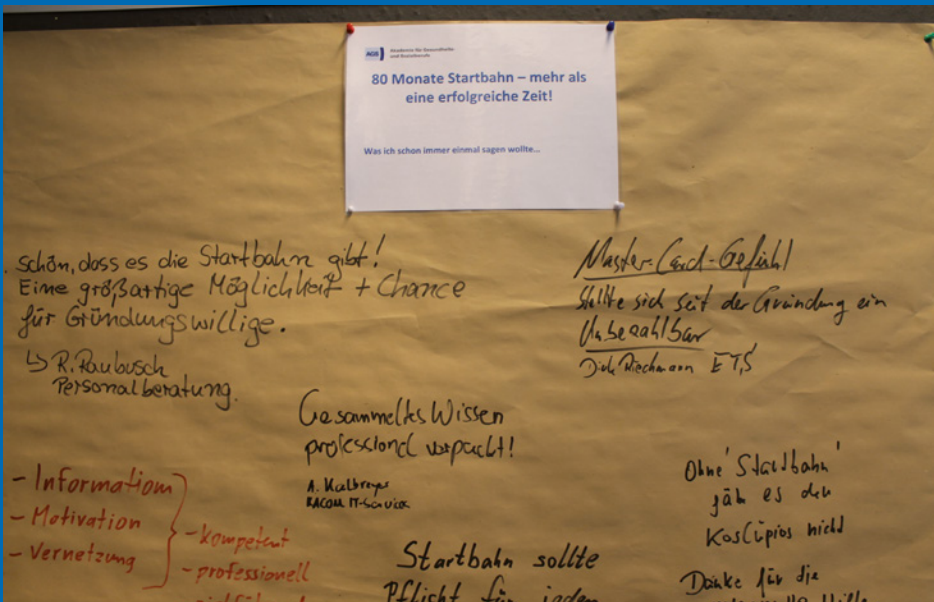 AGS Akademie für Gesundheits-
und Sozialberufe
80 Monate Startbahn – mehr als
eine erfolgreiche Zeit!
Was ich schon immer einmal sagen wollte...
Schön, dass es die Startbahn gibt!
Eine großartige Möglichkeit + Chance
für Gründungswillige.
↳ R. Raubusch
Personalberatung.
Master-Card-Gefühl
stellte sich seit der Gründung ein
Unbezahlbar
Dirk Riechmann ETS
Gesammeltes Wissen
professionell verpackt!
A. Kalbreyer
RACOM IT-Service
- Information
- Motivation
- Vernetzung
- kompetent
- professionell
Startbahn sollte
Pflicht für jeden
Ohne 'Startbahn'
gäb es den
nicht
Danke für die